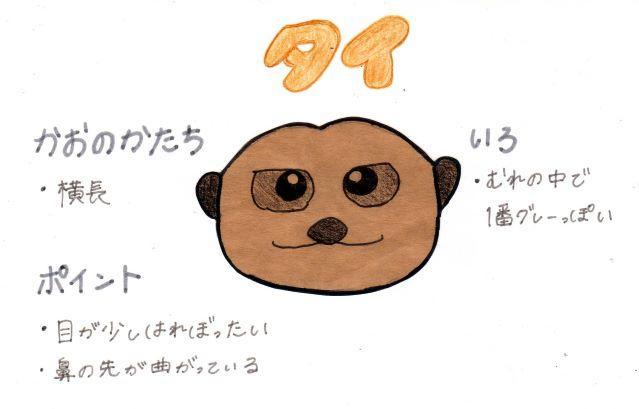 タイ
かおのかたち
・横長
いろ
・むれの中で
1番グレーっぽい
ポイント
・目が少しはれぼったい
・鼻の先が曲がっている